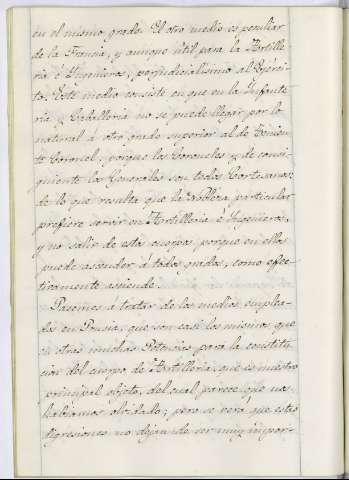 en el mismo grado. El otro medio es peculiar
de la Francia, y aunque util para la Artille-
ria è Ingenieros, perjudicialisimo al Exérci-
to. Este medio consiste en que en la Infante-
ria y Caballeria no se puede llegar por lo
natural á otro grado superior al de Tenien-
te Coronel, porque los Coroneles y de consi-
guiente los Generales son todos Cortesanos:
de lo que resulta que la Nobleza particular
prefiere servir en Artilleria è Ingenieros,
y no salir de estos cuerpos, porque en ellos
puede ascender á todos grados, como efec-
tivamente asciende.
Pasemos á tratar de los medios emplea-
dos en Prusia, que son casi los mismos que
en otras muchas Potencias para la constitu-
cion del cuerpo de Artilleria, que es nuestro
principal objeto, del cual parece que nos
habiamos olvidado; pero se verá que estas
digresiones no dejan de ser muy impor-